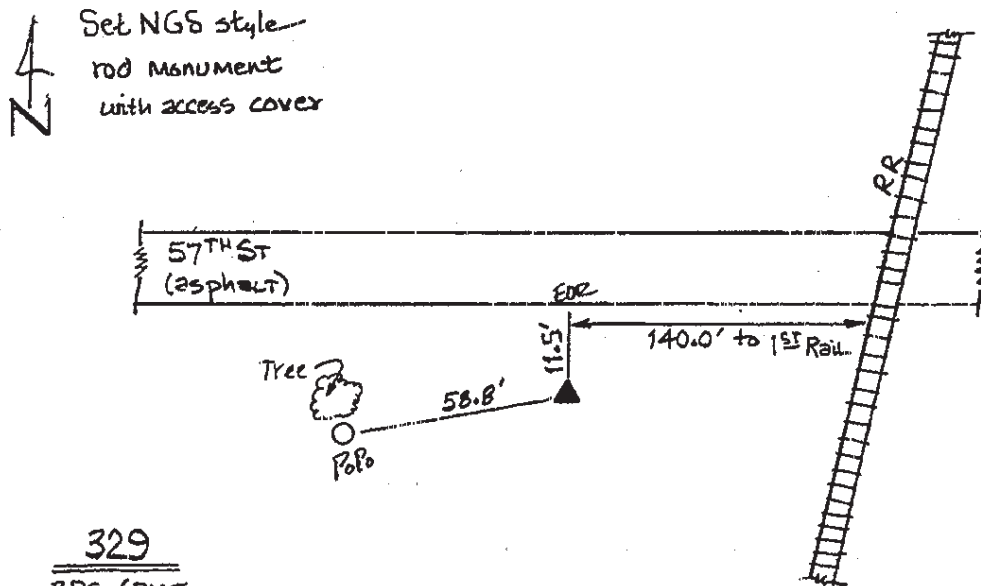 Set NGS style
rod monument
with access cover
N
RR
57TH ST
(asphalt)
EOR
11.5'
140.0' to 1ST Rail
Tree
58.8'
PoPo
329